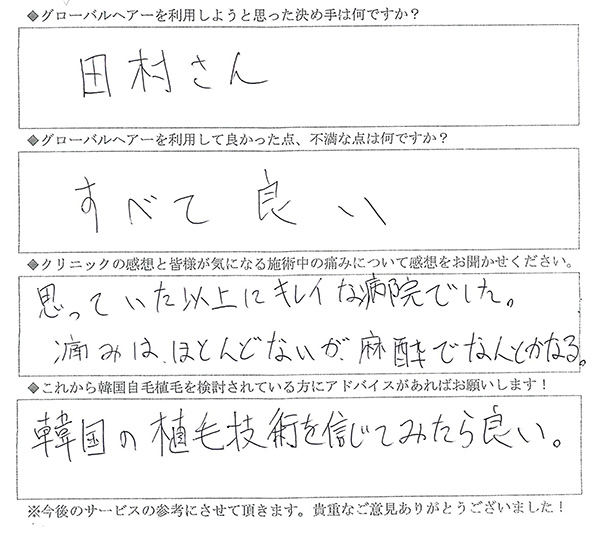 ◆グローバルヘアーを利用しようと思った決め手は何ですか？
田村さん
◆グローバルヘアーを利用して良かった点、不満な点は何ですか？
すべて良い
◆クリニックの感想と皆様が気になる施術中の痛みについて感想をお聞かせください。
思っていた以上にキレイな病院でした。
痛みは、ほとんどないが、麻酔でなんとかなる。
◆これから韓国自毛植毛を検討されている方にアドバイスがあればお願いします！
韓国の植毛技術を信じてみたら良い。
※今後のサービスの参考にさせて頂きます。貴重なご意見ありがとうございました！